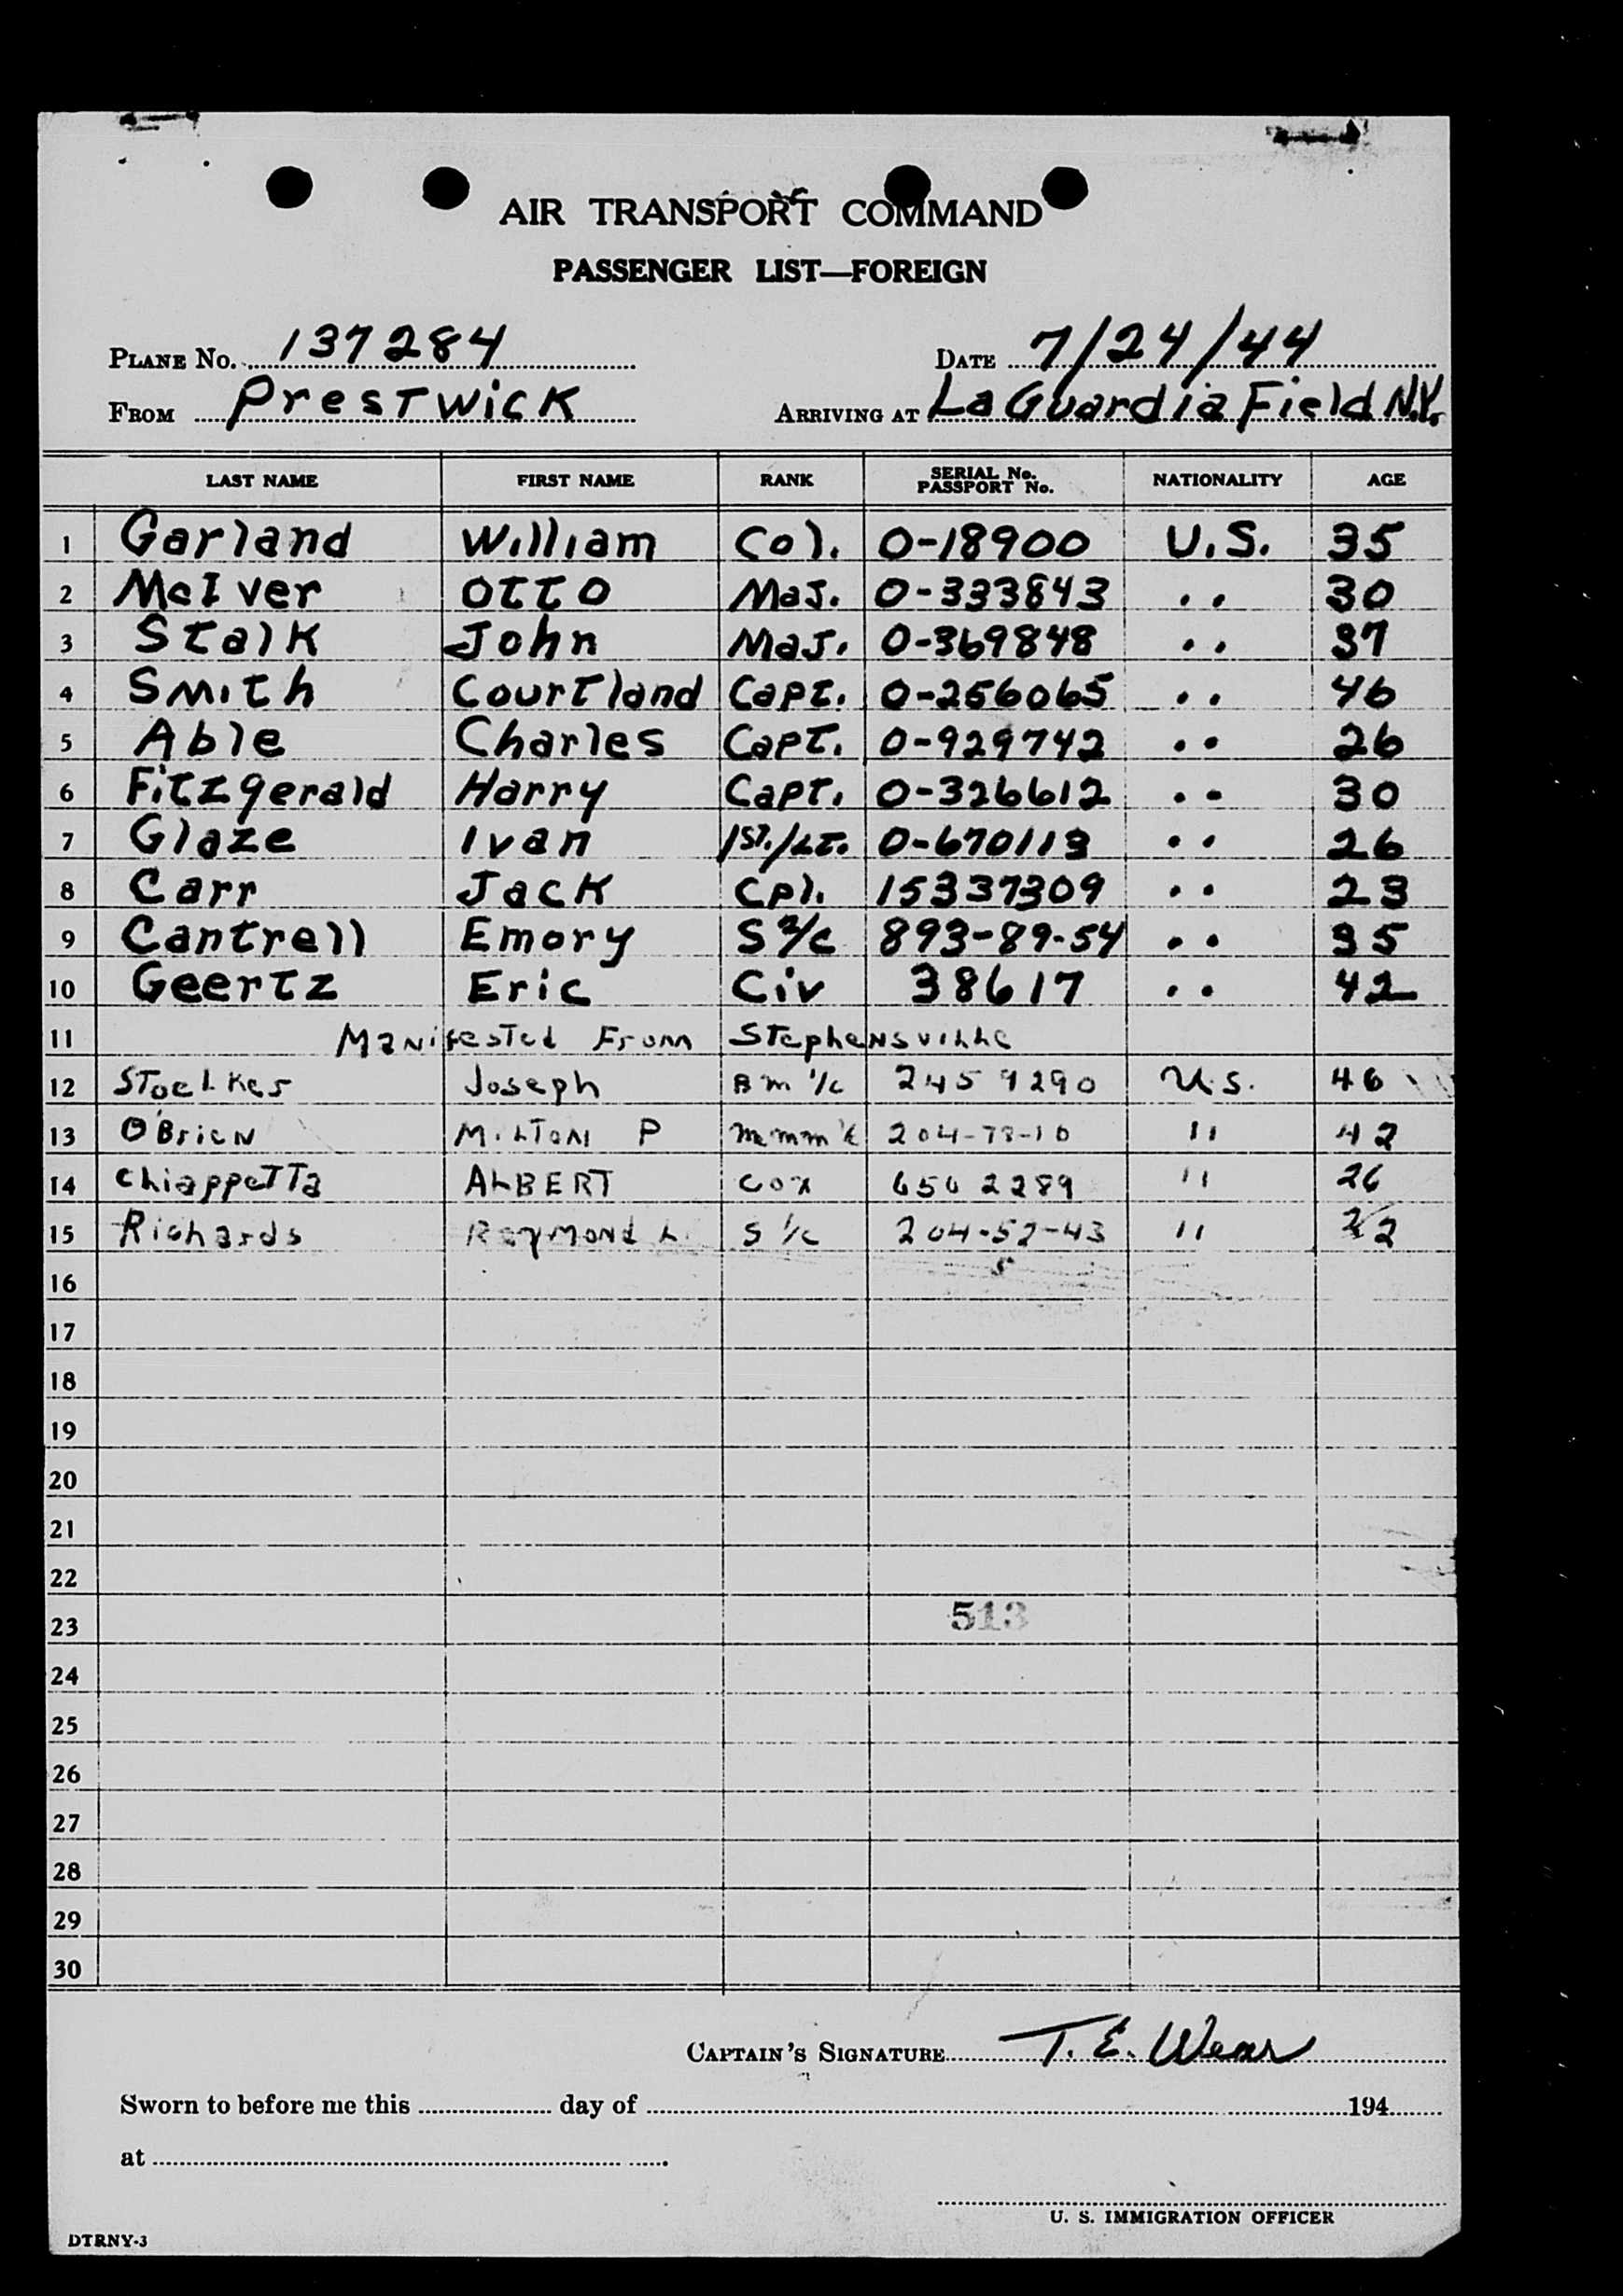 AIR TRANSPORT COMMAND
PASSENGER LIST—FOREIGN
PLANE No. 137284 DATE 7/24/44
FROM Prestwick ARRIVING AT LaGuardia Field N.Y.
LAST NAME FIRST NAME RANK SERIAL No. PASSPORT No. NATIONALITY AGE
1 Garland William Col. 0-18900 U.S. 35
2 McIver Otto Maj. 0-333843 " 30
3 Stalk John Maj. 0-369848 " 37
4 Smith Courtland Capt. 0-256065 " 46
5 Able Charles Capt. 0-929742 " 26
6 Fitzgerald Harry Capt. 0-326612 " 30
7 Glaze Ivan 1st./Lt. 0-670113 " 26
8 Carr Jack Cpl. 15337309 " 23
9 Cantrell Emory S 2/c 893-89-54 " 35
10 Geertz Eric Civ 38617 " 42
11 Manifested From Stephensville
12 Stoelkes Joseph BM 1/c 2459290 U.S. 46
13 O'Brien Milton P 204-78-10 " 42
14 Chiappetta ALBERT Cox 6562289 " 26
15 Richards Raymond L. S 1/c 204-52-43 " 22
16
17
18
19
20
21
22
23 513
24
25
26
27
28
29
30
CAPTAIN'S SIGNATURE T. E. Wear
Sworn to before me this day of 194
at
U. S. IMMIGRATION OFFICER
DTRNY-3